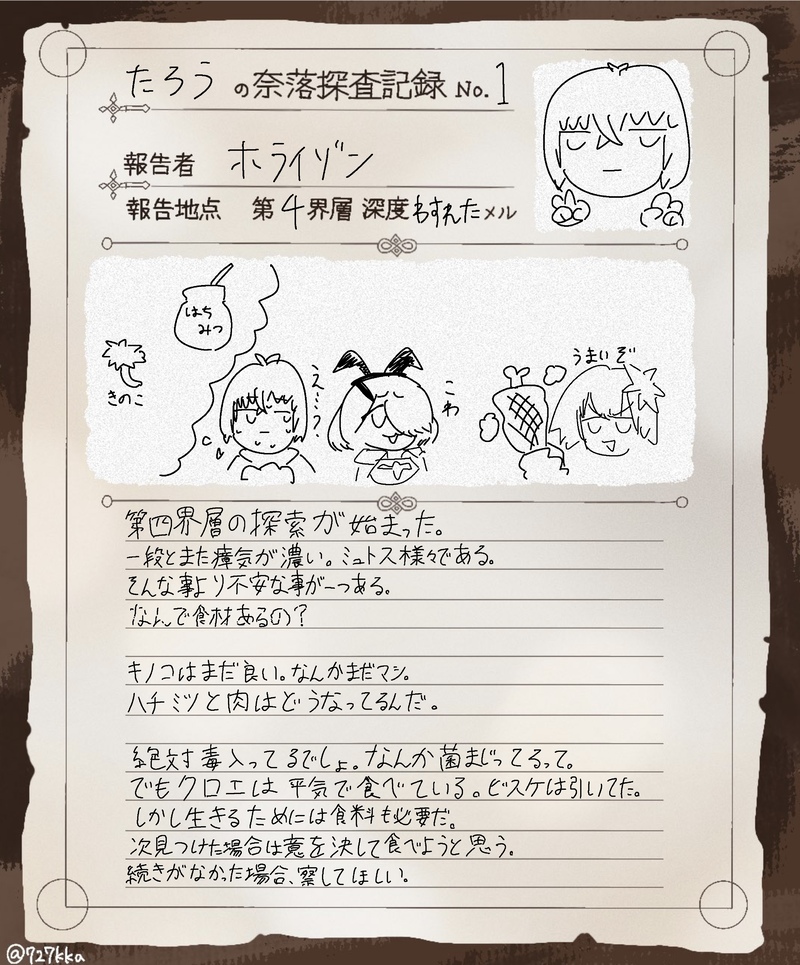 たろうの奈落探査記録 No.1
報告者 ホライゾン
報告地点 第4界層 深度わすれたメル
はち
みつ
きのこ
え……?
こわ
うまいぞ
第四界層の探索が始まった。
一段とまた瘴気が濃い。ミュトス様々である。
そんな事より不安な事が一つある。
なんで食材あるの?
キノコはまだ良い。なんかまだマシ。
ハチミツと肉はどうなってるんだ。
絶対毒入ってるでしょ。なんか菌まじってるって。
でもクロエは平気で食べている。ビスケは引いてた。
しかし生きるためには食料も必要だ。
次見つけた場合は意を決して食べようと思う。
続きがなかった場合、察してほしい。
@727kka